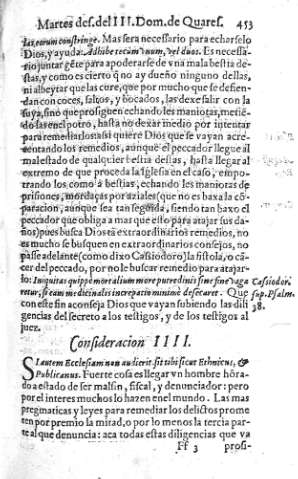 Martes des. del III. Dom. de Quares. 453
las, eorum constringe. Mas sera necessario para echarselo
Dios, y ayuda: Adhibe tecum unum, vel duos. Es necessa-
rio juntar gẽte para apoderarse de vna mala bestia de-
stas, y como es cierto q̃ no ay dueño ninguno dellas,
ni albeytar que las cure, que por mucho que se defien-
dan con coces, saltos, y bocados, las dexe salir con la
suya, sino que prosiguen echando les maniotas, metiẽ-
do las en cipotro, hasta no dexar medio por intentar
para remediarlos: assi quiere Dios que se vayan acre-
centando los remedios, aunque el peccador llegue al
mal estado de qualquier bestia destas, hasta llegar al
extremo de que proceda la Iglesia en el caso, empo-
trando los como a bestias, echando les maniotas de
prisiones, mordaças por aziales (que no es baxa la cõ-
paracion, aunque sea tan seguida, siendo tan baxo el
peccador que obliga a marque esto para atajar sus da-
ños) pues busca Dios ta extraordinarios remedios, no
es mucho se busquen en extraordinarios consejos, no
passe adelante (como dixo Cassiodoro) la fistola, o cã-
cer del peccado, por no le buscar remedio para atajar-
lo: Iniquitas quippe mortalium more putredinis sine fine vaga Cassiodor.
retur, si eam medicinalis increpatio minimè desecaret. Que sup. Psalm.
con este fin aconseja Dios que vayan subiendo las dili 38.
gencias del secreto a los testigos, y de los testigos al
juez.
Consideracion IIII.
SI autem Ecclesiam non audierit sit tibi sicut Ethnicus, &
Publicanus. Fuerte cosa es llegar vn hombre hõra-
do a estado de ser malsin, fiscal, y denunciador: pero
por el interes muchos lo hazen en el mundo. Las mas
pregmaticas y leyes para remediar los delictos prome
ten por premio la mirad, o por lo menos la tercia par-
te al que denuncia: aca todas estas diligencias que va
Ff 3 prosi-